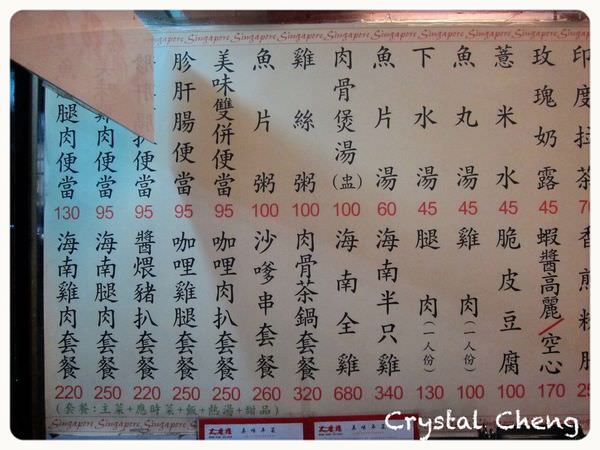 Singapore. Singapore. Singapore. Singapore. Singapore. Singapore. Singapore. Singapore. Singapore.
印度拉茶
玫瑰奶露 45
薏米水 45
魚丸湯 45
下水湯 45
魚片湯 60
肉骨煲湯(盅) 100
雞絲粥 100
魚片粥 100
美味雙併便當 95
胗肝腸便當 95
扒便當 95
肉便當 95
腿肉便當 130
香煎粉
蝦醬高麗/空心 170
脆皮豆腐 100
雞肉(一人份) 100
腿肉(一人份) 130
海南半只雞 340
海南全雞 680
肉骨茶鍋套餐 320
沙嗲串套餐 260
咖哩肉扒套餐 250
咖哩雞腿套餐 250
醬煨豬扒套餐 220
海南腿肉套餐 250
海南雞肉套餐 220
(套餐:主菜+應時菜+飯+熱湯+甜品)
Crystal Cheng